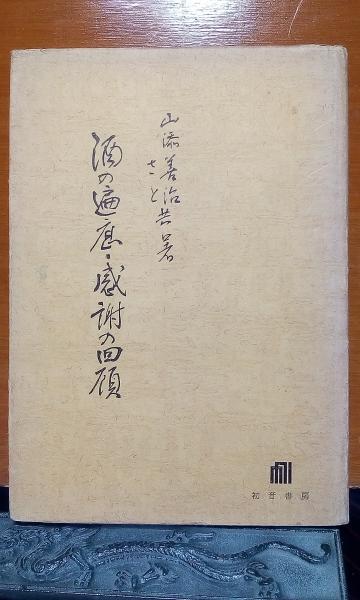 山添善治共著
さと
酒の遍歴・感謝の回顧
初音書房